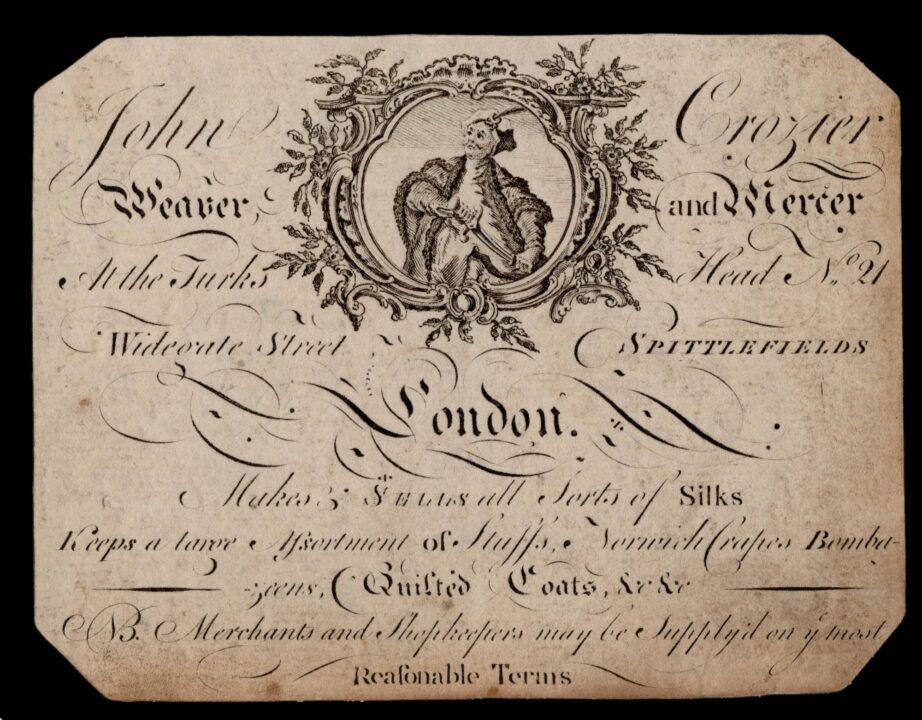 John Crozier
Weaver, and Mercer
At the Turks Head N.º 21
Widegate Street SPITTLEFIELDS
London.
Makes & SELLS all Sorts of Silks
Keeps a large Aſsortment of Stuffs, Norwich Crapes Bomba-
-zeens, Quilted Coats, &c &c
NB. Merchants and Shopkeepers may be Supply'd on yͤ most
Reaſonable Terms